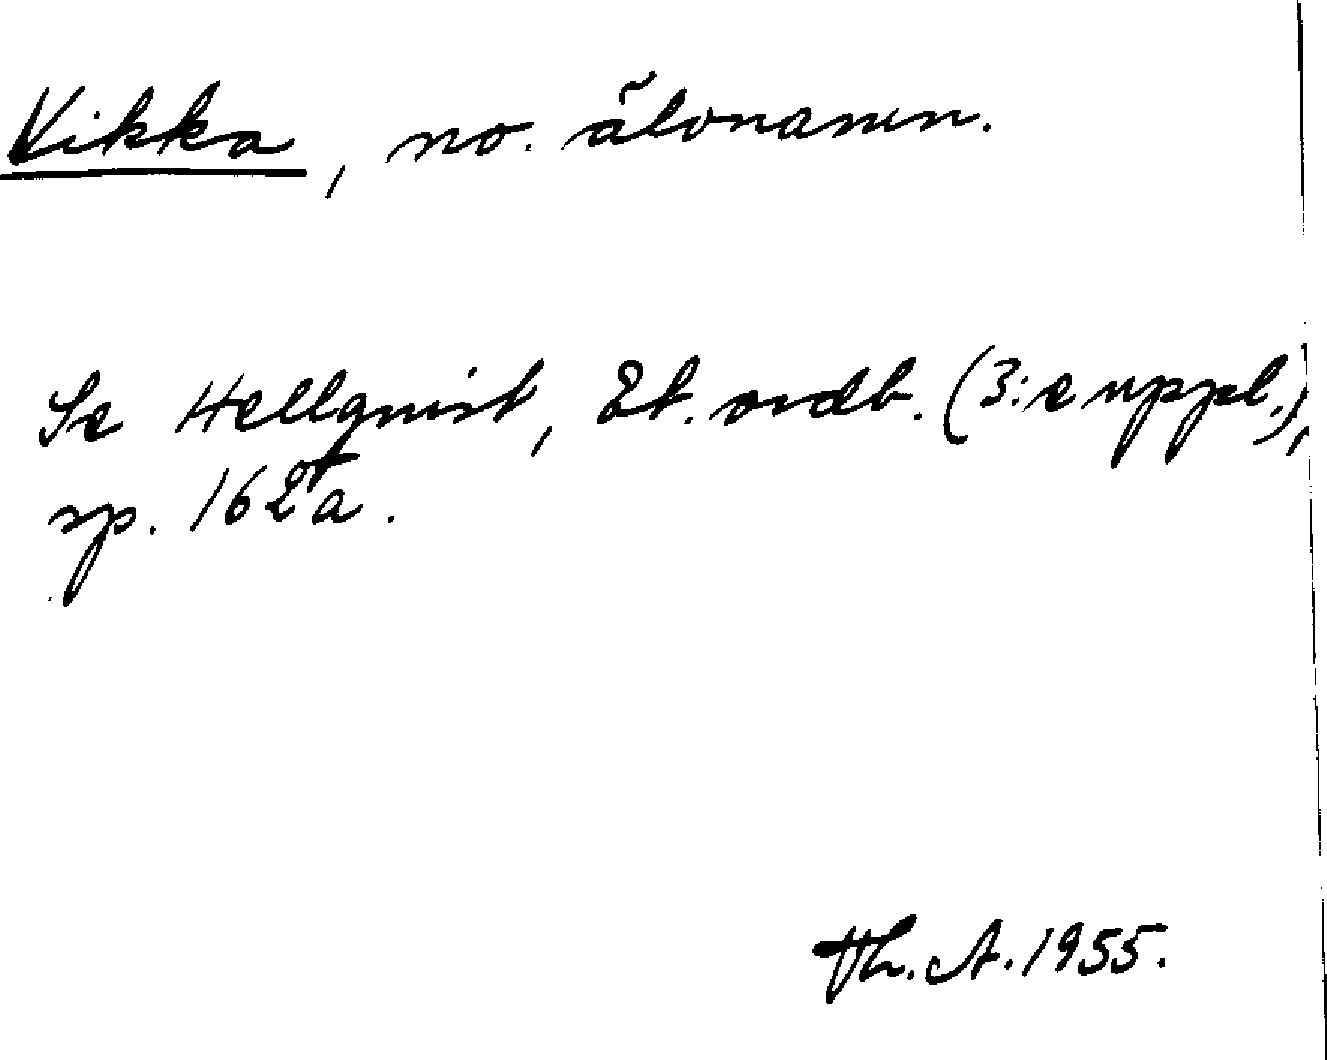 Vikka, no. älvnamn.
Se Hellquist, Et. ordb. (3:e uppl.),
sp. 162 a.
Th. A. 1955.